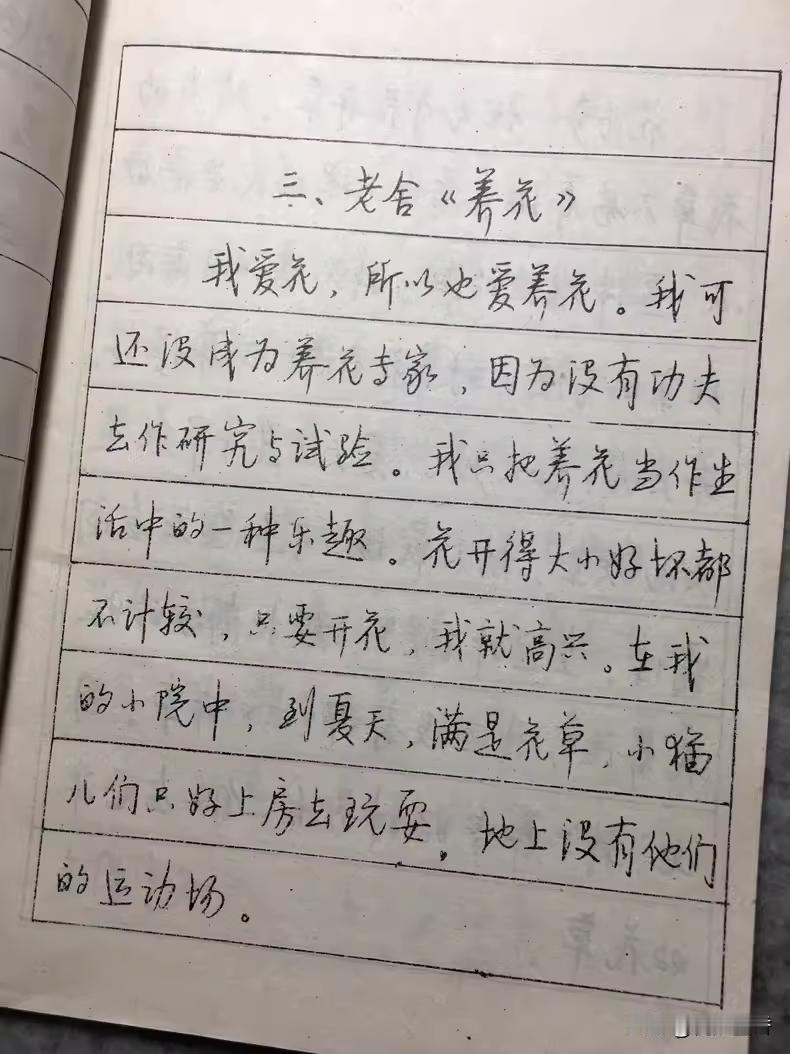 三、老舍《养花》
我爱花，所以也爱养花。我可
还没成为养花专家，因为没有功夫
去作研究与试验。我只把养花当作生
活中的一种乐趣。花开得大小好坏都
不计较，只要开花，我就高兴。在我
的小院中，到夏天，满是花草，小猫
儿们只好上房去玩耍，地上没有他们
的运动场。